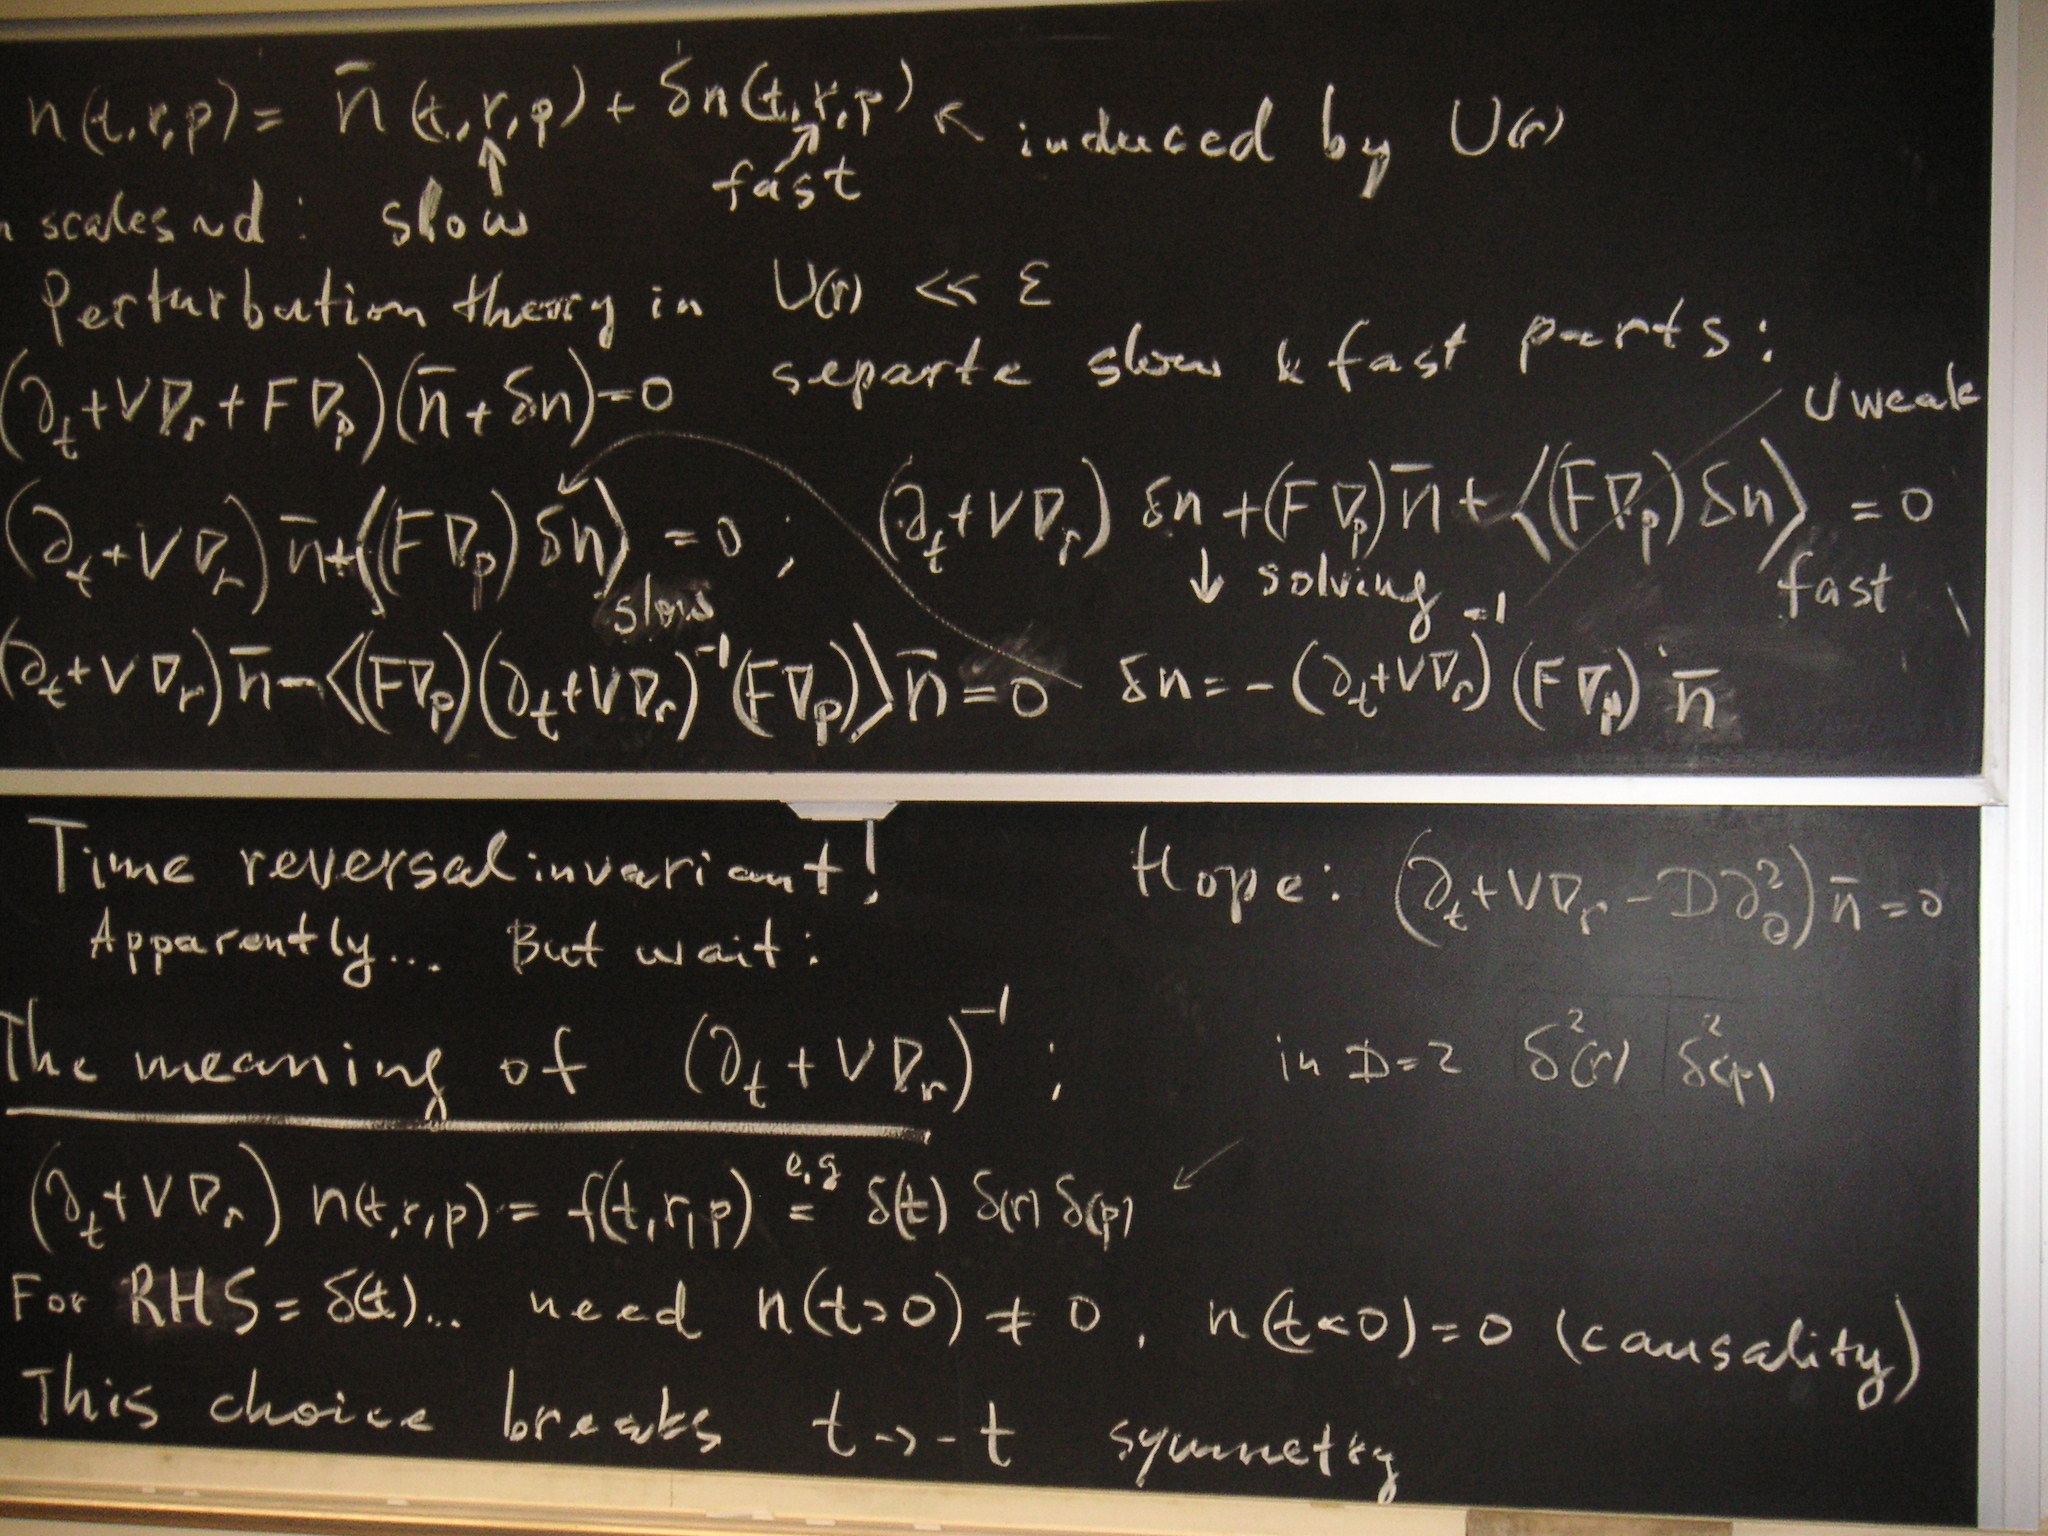 n(t,r,p) = n̄(t,r,p) + δn(t,r,p) ← induced by U(r)
scales ~ d : slow fast
Perturbation theory in U(r) << ε
separte slow & fast parts:
(∂_t + V∇_r + F∇_p)(n̄ + δn) = 0
U weak
(∂_t + V∇_r) n̄ + ⟨(F∇_p) δn⟩_slow = 0 ; (∂_t + V∇_r) δn + (F∇_p) n̄ + ⟨(F∇_p) δn⟩_fast = 0
↓ solving
(∂_t + V∇_r) n̄ - ⟨(F∇_p)(∂_t + V∇_r)^-1 (F∇_p)⟩ n̄ = 0 δn = - (∂_t + V∇_r)^-1 (F∇_p) n̄
Time reversal invariant!
Apparently... But wait:
Hope: (∂_t + V∇_r - D∂_θ^2) n̄ = 0
The meaning of (∂_t + V∇_r)^-1 ;
in D=2 δ^2(r) δ^2(p)
(∂_t + V∇_r) n(t,r,p) = f(t,r,p) e.g = δ(t) δ(r) δ(p)
For RHS = δ(t)... need n(t>0) ≠ 0, n(t<0) = 0 (causality)
This choice breaks t → -t symmetry